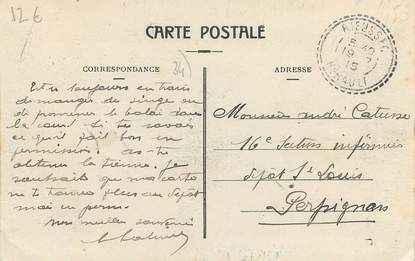 12 €
34
CARTE POSTALE
CORRESPONDANCE
ADRESSE
RIEUSSEC
18 40
19 7
15
HERAULT
Es tu toujours en train
de manger du singe ou
de promener le balai dans
la cour. Si tu savais
ce qu'il fait bon en
permission! As-tu
obtenu la tienne. Je
souhaite que ma carte
ne te trouve plus au dépôt
mais en perm.
Mon meilleur souvenir
Monsieur André Catusse
16e Section infirmiers
dépôt St Louis
Perpignan